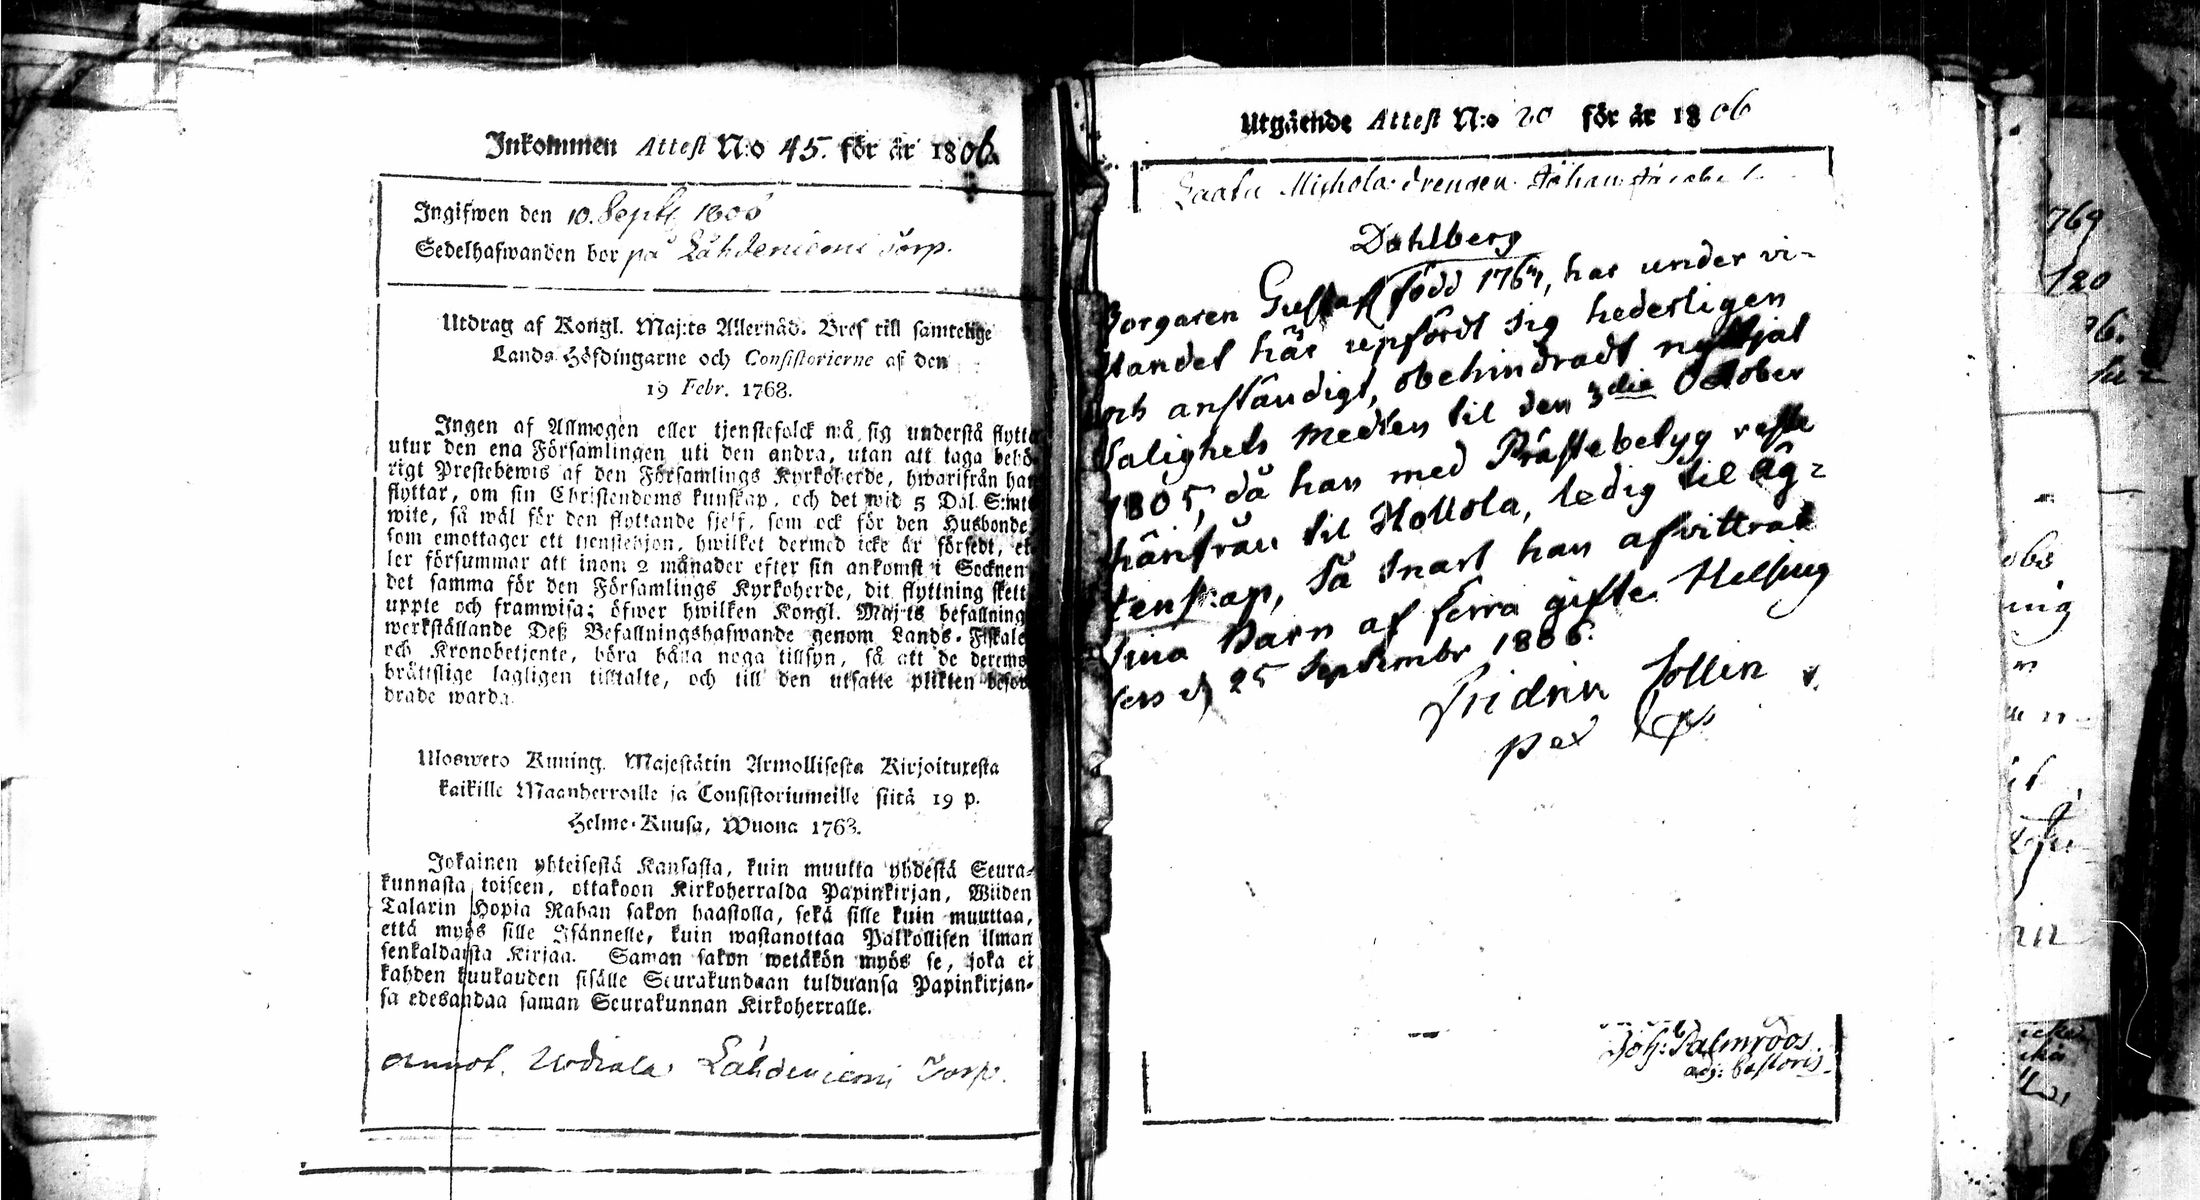 Inkommen Attest N:o 45. för år 1806.
Ingifwen den 10. Sept. 1806
Sedelhafwanden bor på Lähdeniemi Torp.
Utdrag af Kongl. Maj:ts Allernåd. Bref till samtelige
Lands-Höfdingarne och Consistorierne af den
19 Febr. 1768.
Ingen af Allmogen eller tjenstefolck må sig understå flytta
utur den ena Församlingen uti den andra, utan att taga behö-
rigt Prestebewis af den Församlings Kyrkoherde, hwarifrån han
flyttar, om sin Christendoms kunskap, och det wid 5 Dal. S:mts
wite, så wäl för den flyttande sjelf, som ock för den Husbonde,
som emottager ett tjenstehjon, hwilket dermed icke är försedt, el-
ler försummar att inom 2 månader efter sin ankomst i Socknen
det samma för den Församlings Kyrkoherde, dit flyttning skett,
uppte och framwisa; öfwer hwilken Kongl. Maj:ts befallning
werkställande Deß Befallningshafwande genom Lands-Fiskaler
och Kronobetjente, böra hålla noga tillsyn, så att de deremot
brättslige lagligen tilltalte, och till den utsatte plikten befor-
drade warda.
Uloswеto Kuning. Majestätin Armollisesta Kirjoituxesta
kaikille Maanherroille ja Consistoriumeille siitä 19 p.
Helme-Kuusa, Wuona 1768.
Jokainen yhteisestä Kansasta, kuin muutta yhdestä Seura-
kunnasta toiseen, ottakoon Kirkoherralda Papinkirjan, Wiiden
Talarin Hopia Rahan sakon haastolla, sekä sille kuin muuttaa,
että myös sille Isännelle, kuin wastanottaa Palkollisen ilman
senkaldaista Kirjaa. Saman sakon wetäkön myös se, joka ei
kahden kuukauden sisälle Seurakundaan tulduansa Papinkirjan-
sa edesandaa saman Seurakunnan Kirkoherralle.
annot. Urdiala Lähdeniemi Torp.
Utgående Attest N:o 20 för år 1806
drengen Johan
Dahlberg
Borgaren Gustaf född 1767, har under vi-
standet här upfördt sig hederligen
och anständigt, obehindradt nyttjat
Salighets medlen til den 3die October
1805, då han med Prästebetyg reste
härifrån til Hollola, ledig til äg-
tenskap, så snart han afvittrat
sina Barn af förra giftet. Helsing
fors d 25 September 1806.
Fridric Sollin
Joh: Palmroos
adj: Pastoris